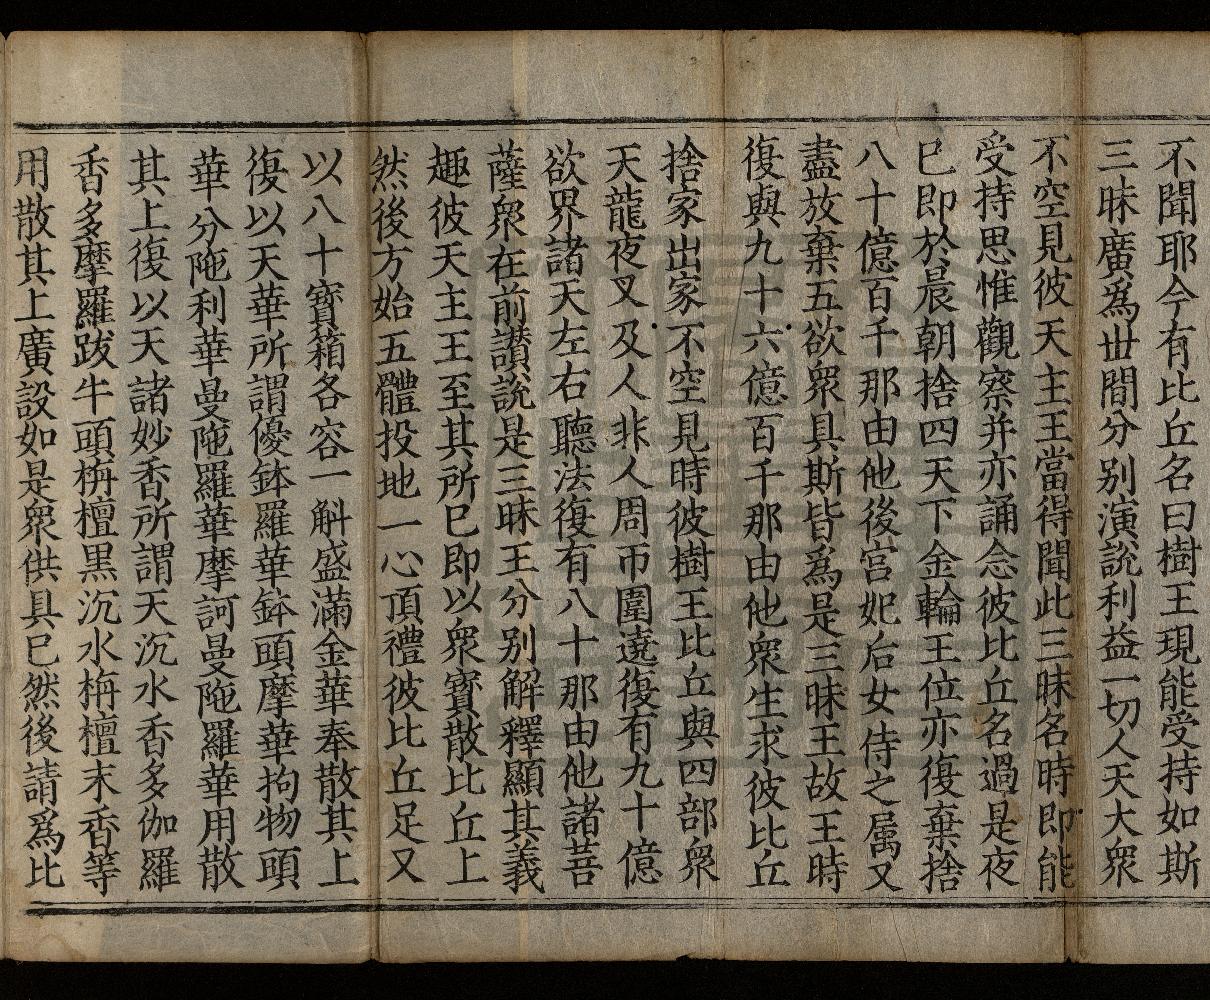 不聞耶今有比丘名曰樹王現能受持如斯
三昧廣為世間分别演說利益一切人天大衆
不空見彼天主王當得聞此三昧名時即能
受持思惟觀察并亦誦念彼比丘名過是夜
已即於晨朝捨四天下金輪王位亦復棄捨
八十億百千那由他後宮妃后女侍之属又
盡放棄五欲衆具斯皆為是三昧王故王時
復與九十六億百千那由他衆生求彼比丘
捨家出家不空見時彼樹王比丘與四部衆
天龍夜叉及人非人周帀圍遶復有九十億
欲界諸天左右聽法復有八十那由他諸菩
薩衆在前讃説是三昧王分别解釋顯其義
趣彼天主王至其所已即以衆寳散比丘上
然後方始五體投地一心頂禮彼比丘足又
以八十寶箱各容一斛盛滿金華奉散其上
復以天華所謂優鉢羅華鉢頭摩華拘物頭
華分陁利華曼陁羅華摩訶曼陁羅華用散
其上復以天諸妙香所謂天沉水香多伽羅
香多摩羅跋牛頭栴檀黒沉水栴檀末香等
用散其上廣設如是衆供具已然後請為比